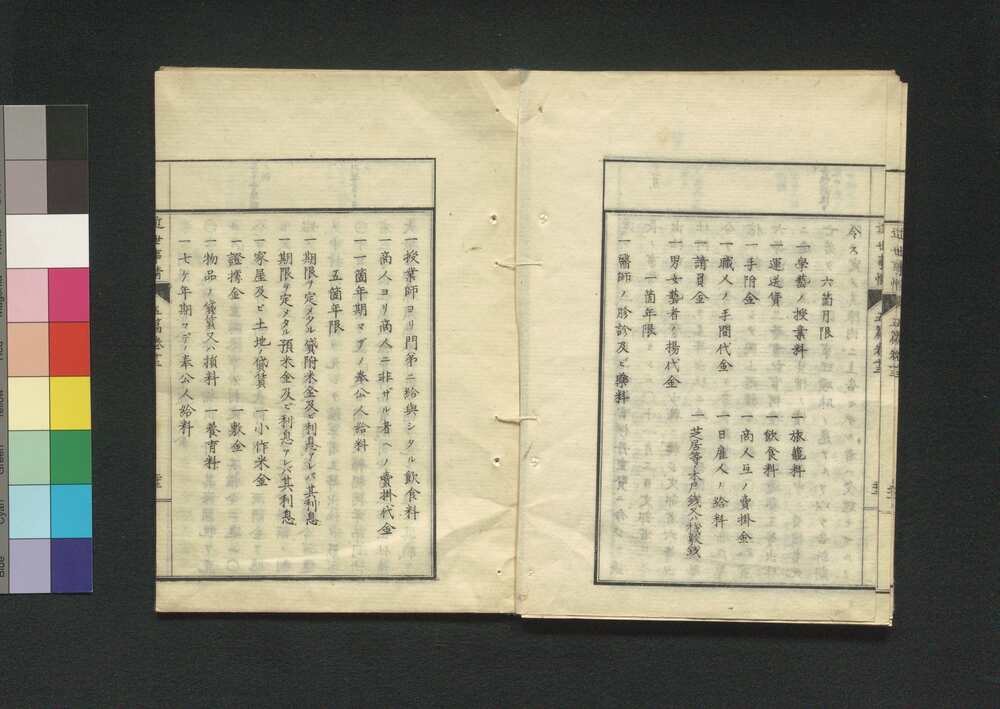 今ス
六箇月限
一學藝ノ授業料 一旅籠料
一運送賃 一飲食料
一手附金 一商人互ノ賣掛金
一職人ノ手間代金 一日雇人ノ給料
一請負金 一芝居等ノ木戸錢又ハ桟敷錢
一男女藝者ノ揚代金
一箇年限
一醫師ノ診及ビ藥料
近世事情 五篇巻十三
一授業師ヨリ門弟ニ給與シタル飲食料
一商人ヨリ商人ニ非ザル者ヘノ賣掛代金
一一箇年期マデノ奉公人給料
五箇年限
一期限ヲ定メタル貸附米金及ビ利息アレバ其利息
一期限ヲ定メタル預米金及ビ利息アレバ其利息
一家屋及ビ土地ノ貸賃 一小作米金
一證據金 一敷金
一物品ノ貸賃又ハ損料 一養育料
一七ケ年期マデノ奉公人給料
近世事情 五篇巻十三